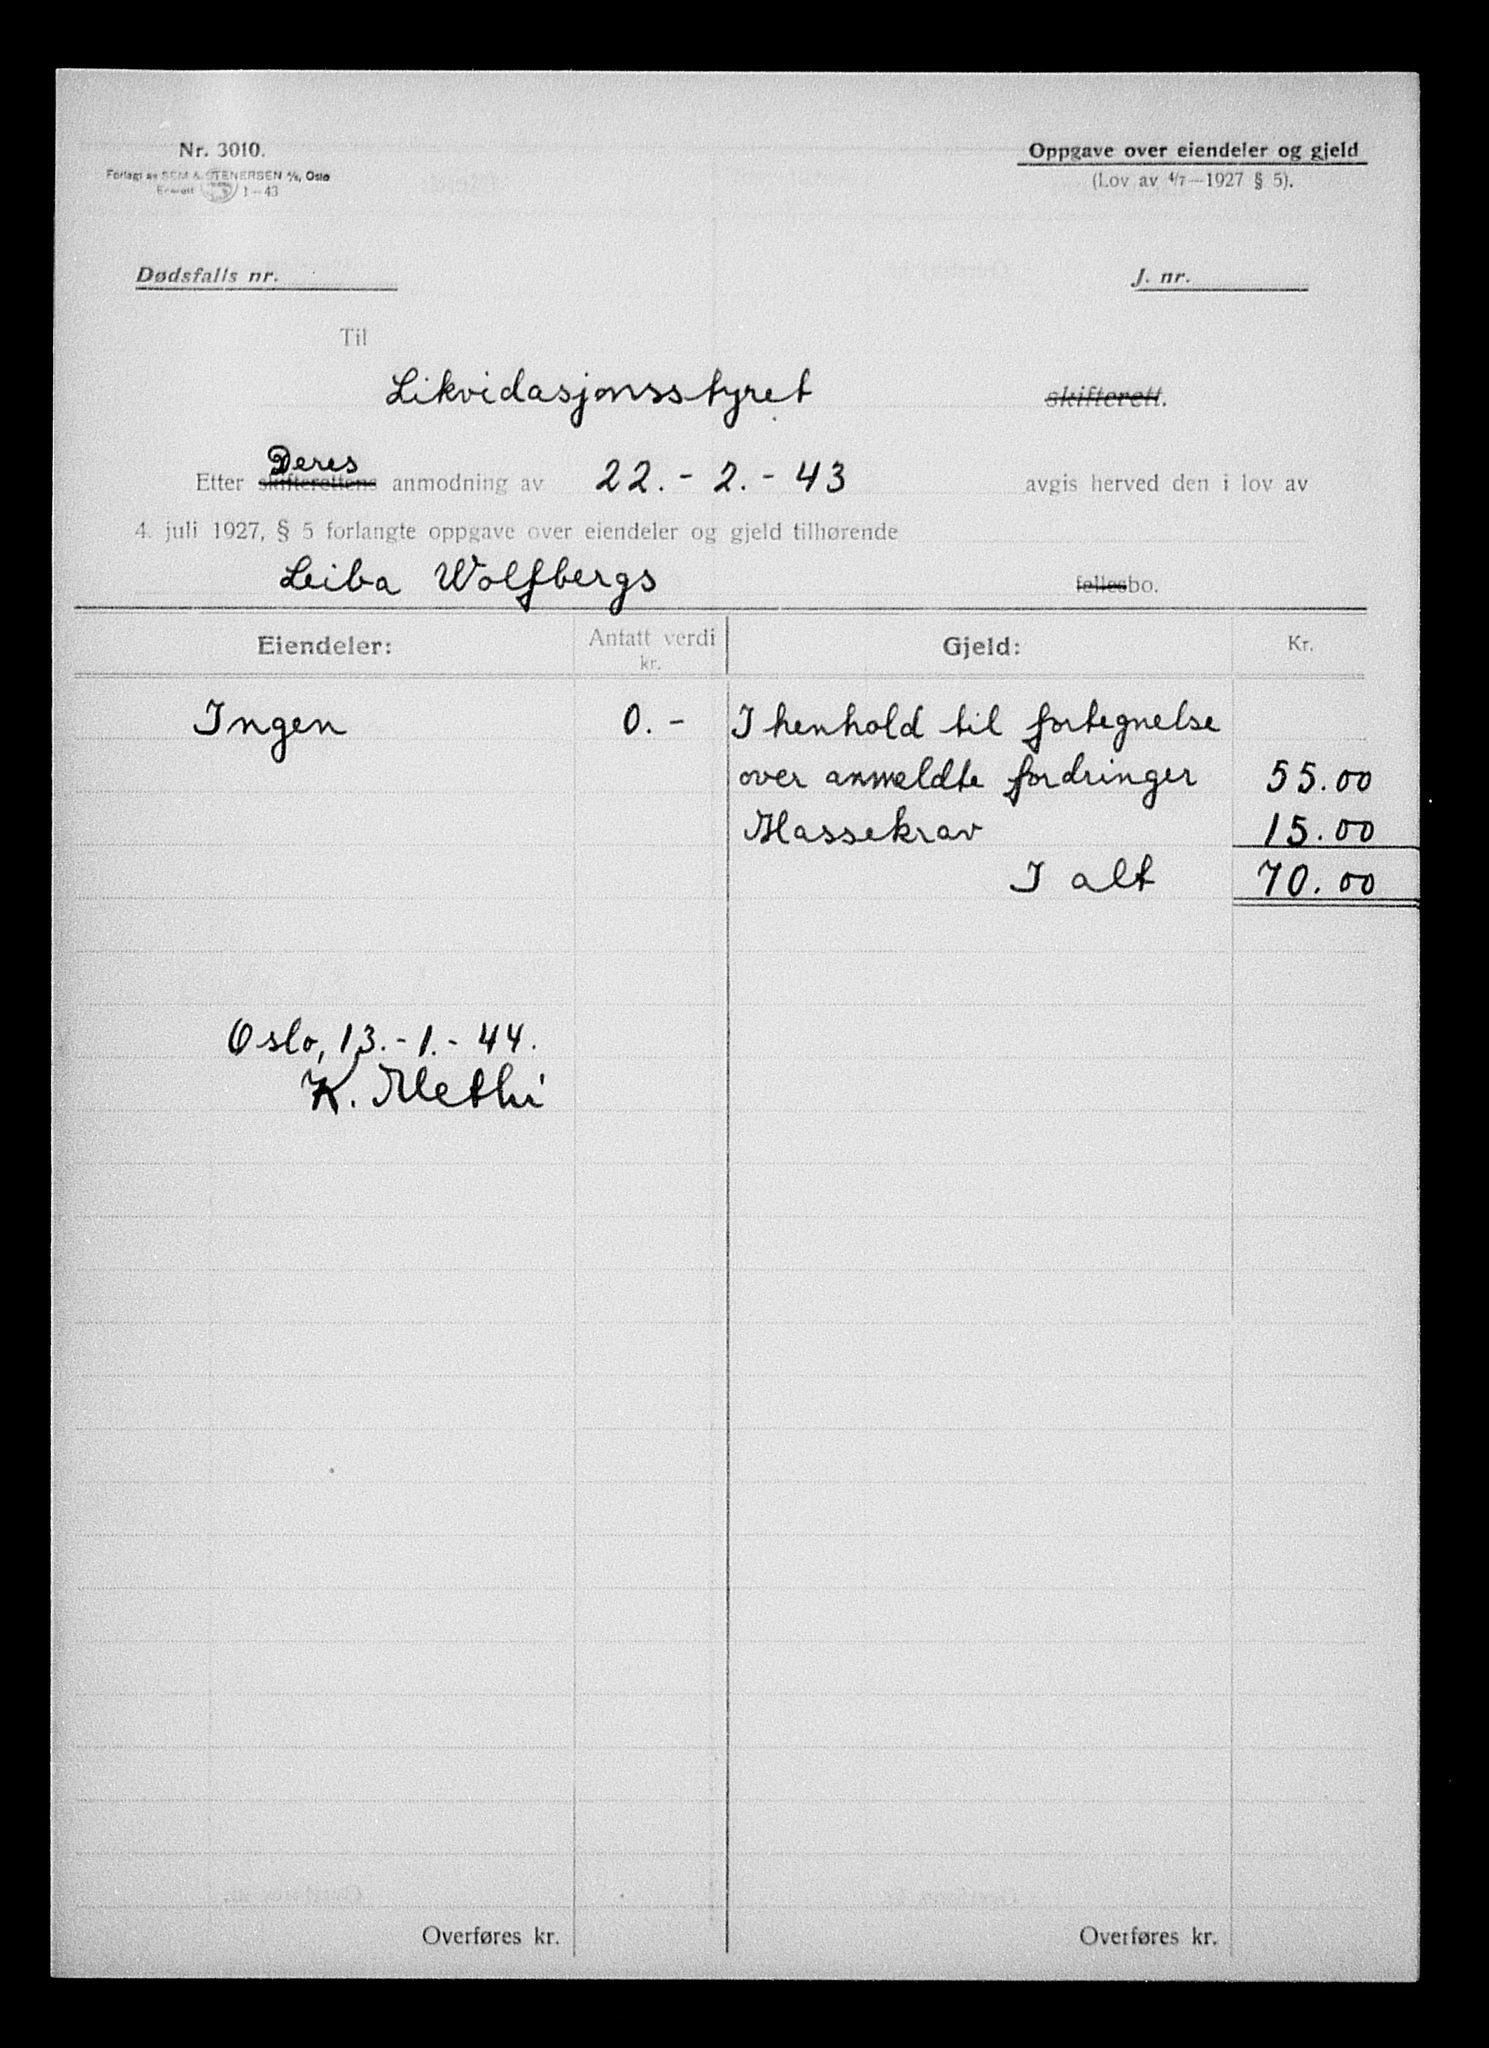 Nr. 3010.
Forlagt av SEM & STENERSEN A/S, Oslo
Enerett 1-43
Oppgave over eiendeler og gjeld
(Lov av 4/7—1927 § 5).
Dødsfalls nr.
J. nr.
Til
Likvidasjonsstyret skifterett.
Deres
Etter skifterettens anmodning av 22.-2.-43 avgis herved den i lov av
4. juli 1927, § 5 forlangte oppgave over eiendeler og gjeld tilhørende
Leiba Wolfbergs fellesbo.
Eiendeler: Antatt verdi kr. Gjeld: Kr.
Ingen 0.- I henhold til fortegnelse
over anmeldte fordringer 55.00
Massekrav 15.00
I alt 70.00
Oslo, 13.-1.-44.
K. Methi
Overføres kr. Overføres kr.